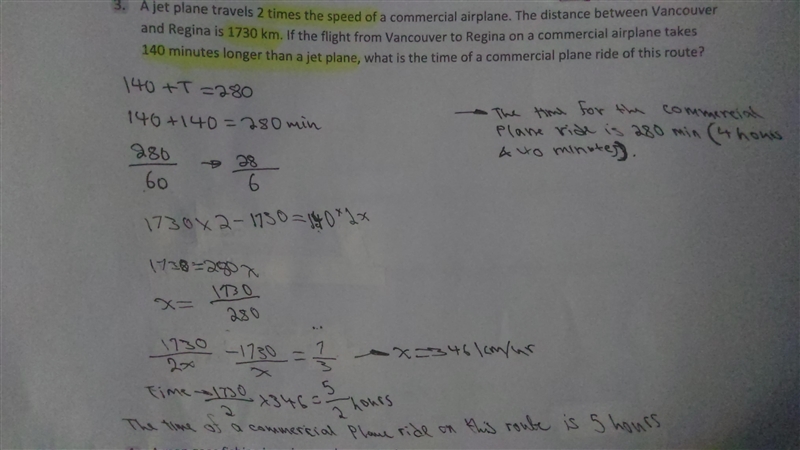 3. A jet plane travels 2 times the speed of a commercial airplane. The distance between Vancouver
and Regina is 1730 km. If the flight from Vancouver to Regina on a commercial airplane takes
140 minutes longer than a jet plane, what is the time of a commercial plane ride of this route?
140 + T = 280
140 + 140 = 280 min
280/60 → 28/6
→ The time for the commercial
plane ride is 280 min (4 hours
& 40 minutes).
1730 x 2 - 1730 = 140 x 2x
1730 = 280x
x = 1730/280
1730/2x - 1730/x = 7/3 → x = 346 km/hr
Time → 1730/2 x 346 = 5/2 hours
The time of a commercial plane ride on this route is 5 hours